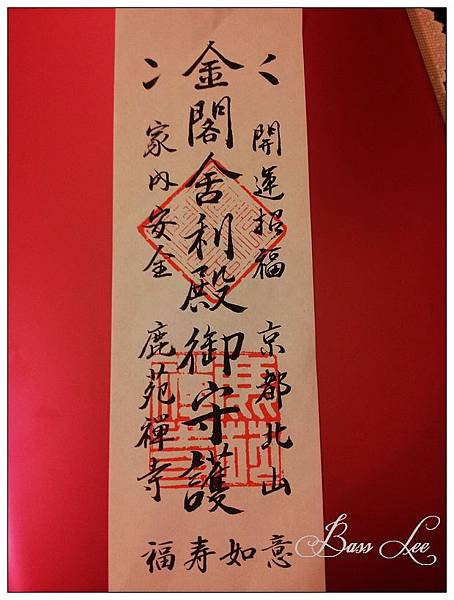 開運招福 京都北山
金閣舎利殿御守護
家内安全 鹿苑禅寺
福寿如意
Bass Lee